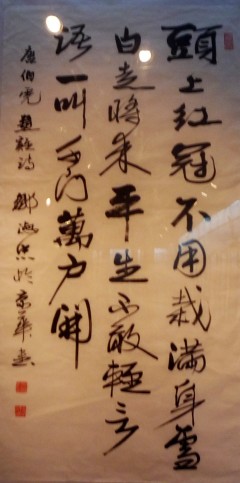 頭上红冠不用裁滿身雪
白走將来平生不敢輕言
語一叫千门萬户開
唐伯虎題雞诗 鄭 於京華書